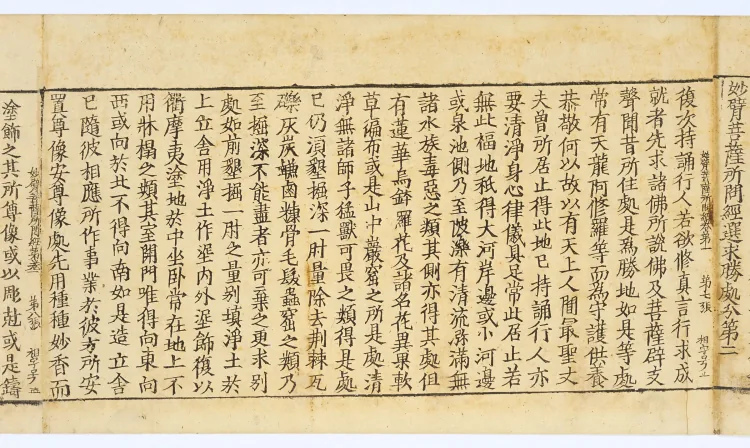 妙臂菩薩所問經選求勝處分第二
妙臂菩薩所問經卷第一 第七張
復次持誦行人若欲修真言行求成
就者先求諸佛所說佛及菩薩辟支
聲聞昔所住處是為勝地如是等處
常有天龍阿修羅等而為守護供養
恭敬何以故以有天上人間最聖丈
夫曾所居止得此地已持誦行人亦
要清淨身心律儀具足常此居止若
無此福地秖得大河岸邊或小河邊
或泉池側乃至陂濼有清流盈滿無
諸水族毒惡之類其側亦得其處但
有蓮華烏鉢羅花及諸名花異果軟
草徧布或是山中巖窟之所是處清
淨無諸師子猛獸可畏之類得是處
已仍須墾掘深一肘量除去荊棘瓦
礫灰炭鹵糠骨毛髮蟲窟之類乃
至掘深不能盡者亦可棄之更求別
處如前墾掘一肘之量別填淨土於
上立舍用淨土作埿內外埿飾復以
衢摩夷塗地於中坐卧常在地上不
用牀榻之類其室開門唯得向東向
西或向於北不得向南如是造立舍
已隨彼相應所作事業於彼方所安
置尊像安尊像處先用種種妙香而
妙臂菩薩所問經卷第一 第八張 想字号
塗飾之其所尊像或以彫尅或是鑄